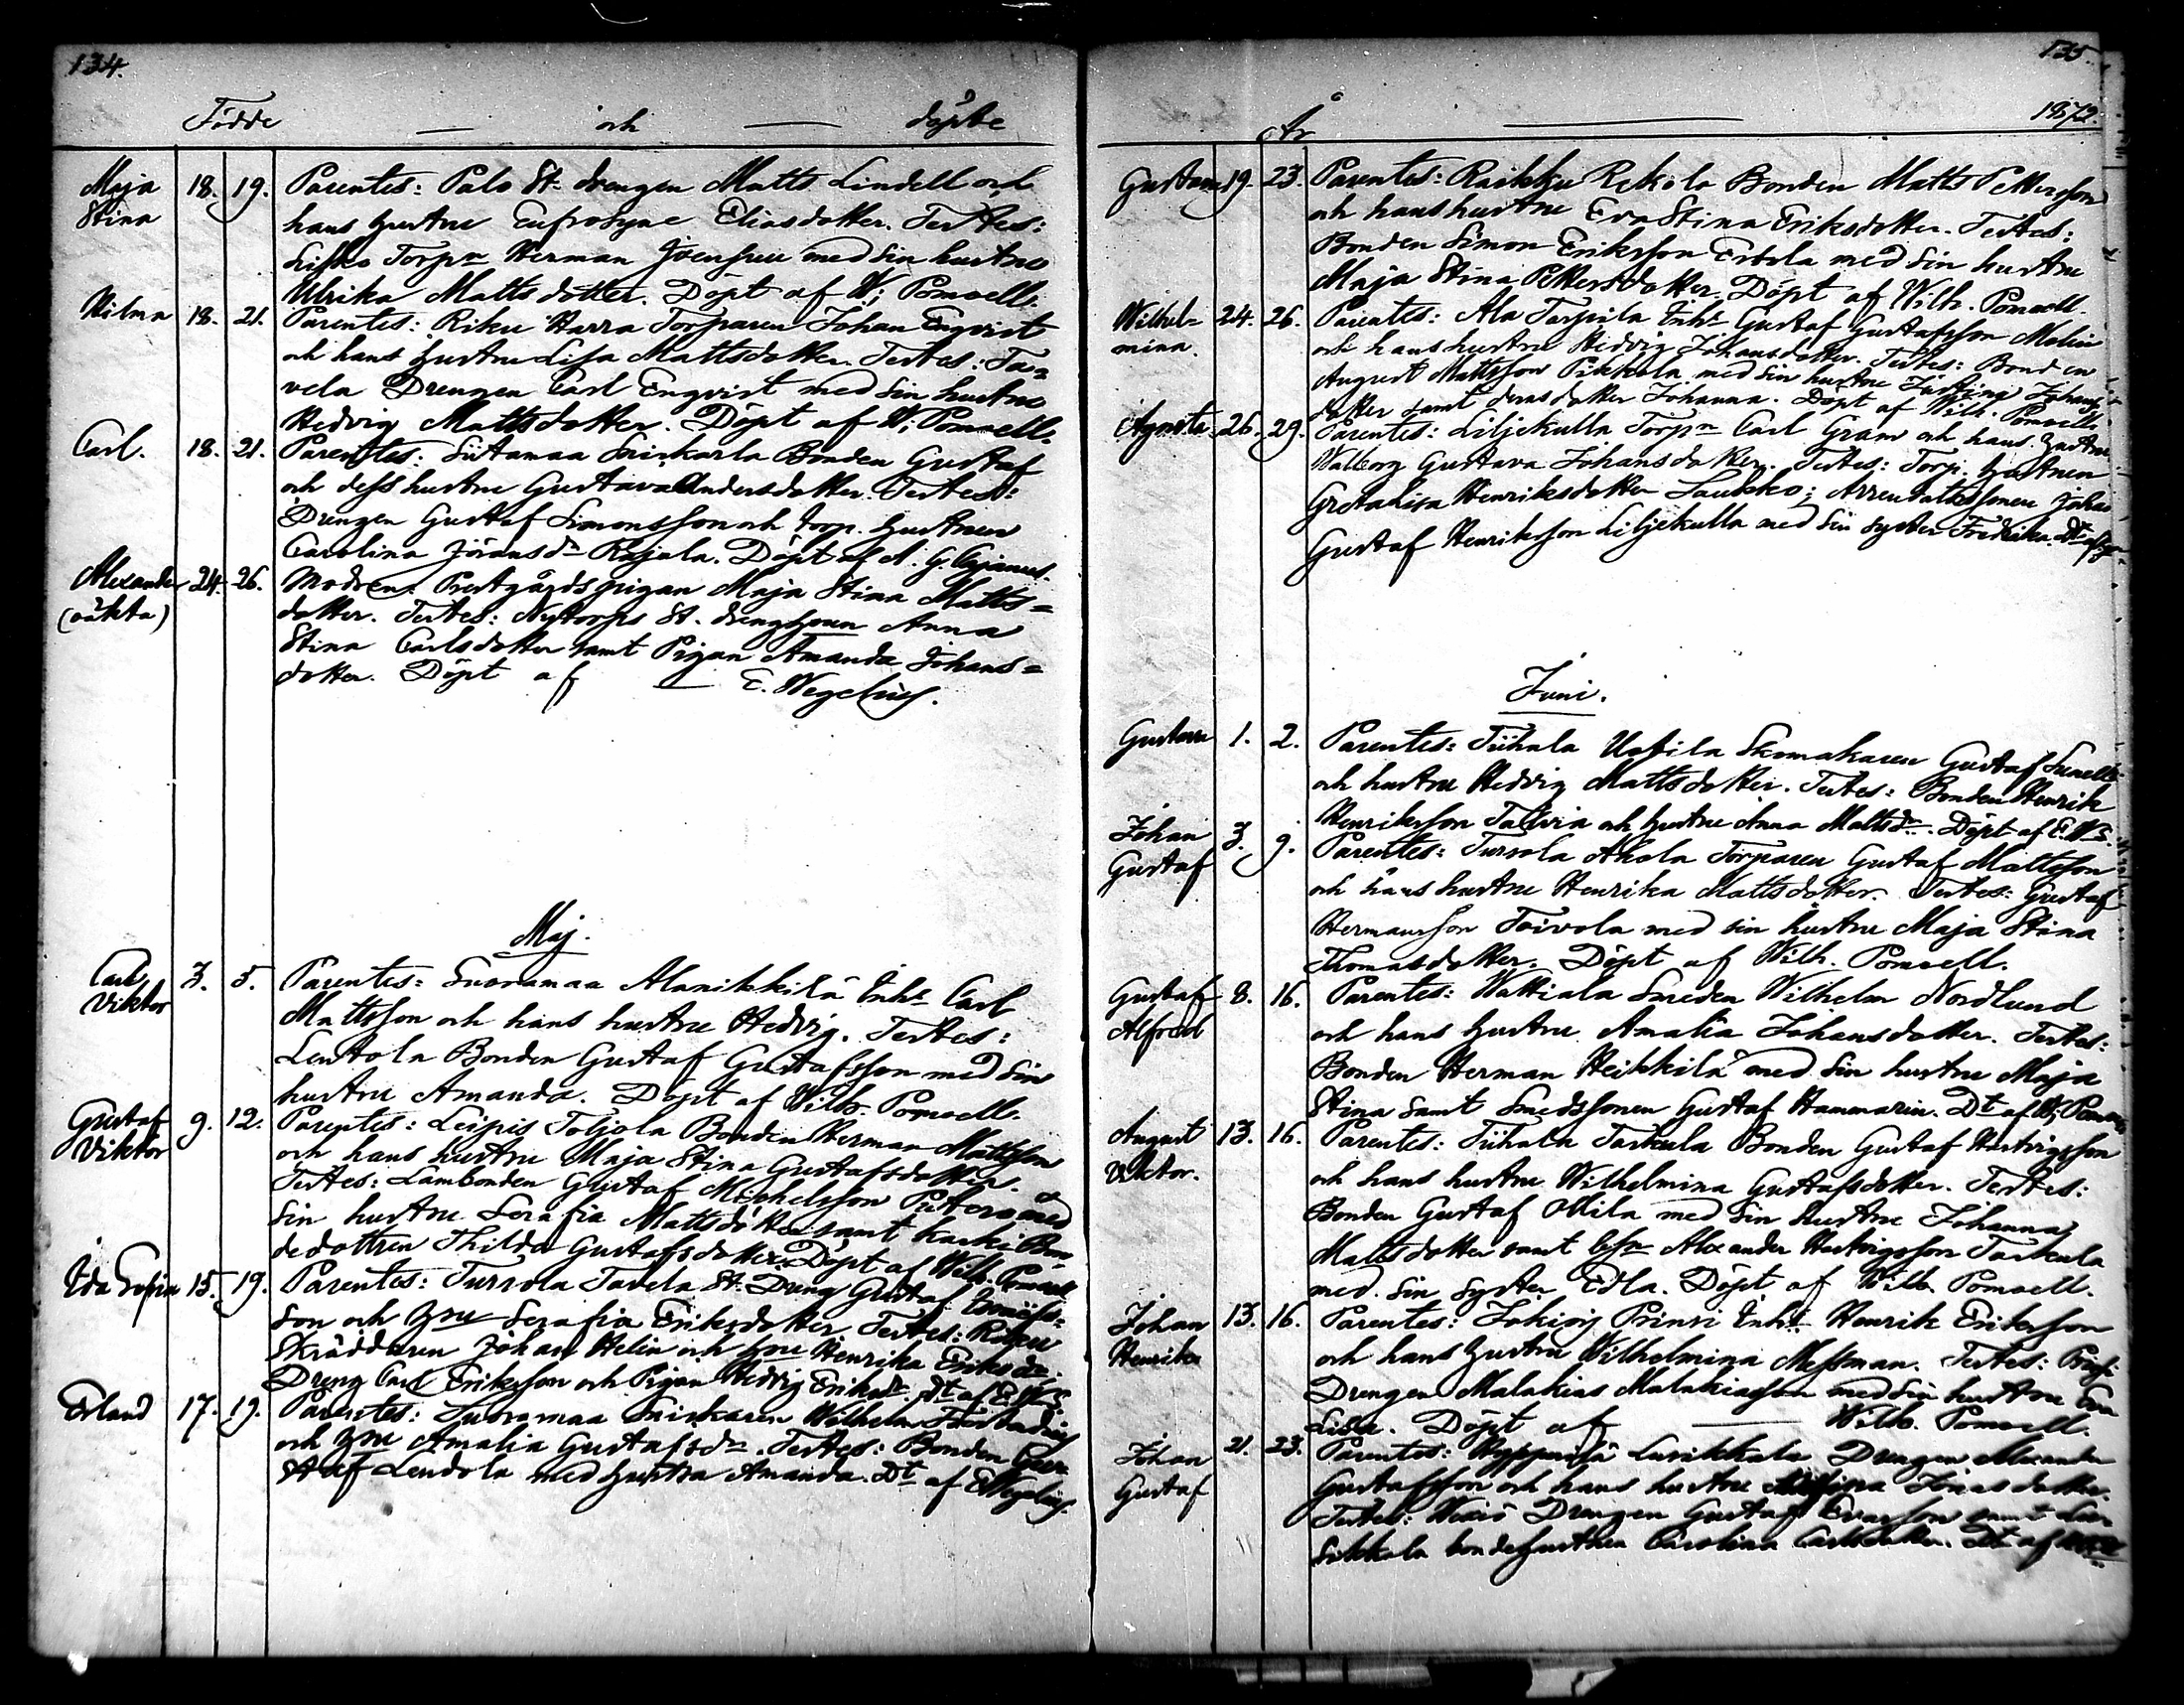 134.
Födde — och — döpte
Maja Stina 18. 19. Parentes: Palo St. drengen Matts Lindell och
hans hustru Eufrosyne Eliasdotter. Testes:
Torpn Herman Joensuu med sin hustru
Ulrika Mattsdotter. Döpt af W; Pomoell.
Hilma 18. 21. Parentes: Riku Harra Torparen Johan Enqvist
och hans hustru Lisa Mattsdotter. Testes: Ta=
vela Drengen Carl Enqvist med sin hustru
Hedvig Mattsdotter. Döpt af W; Pomoell.
Carl. 18. 21. Parentes: Siitamaa Bonden Gustaf
och dess hustru Gustava Andersdotter. Testes:
Drengen Gustaf Simonsson och torp. hustrun
Carolina Jöransdr Rajala. Döpt af A. G. Cajanus.
Alexander (oäkta) 24. 26. Modren: Prestgårds pigan Maja Stina Matts=
dotter. Testes: Nytorps St. drenghustrun Anna
Stina Carlsdotter samt Pigan Amanda Johans=
dotter. Döpt af — E. Wegelius.
Maj.
Carl Viktor 3. 5. Parentes: Suoramaa Alanikkilä Inhs Carl
Mattsson och hans hustru Hedvig. Testes:
Lentola Bonden Gustaf Gustafsson med sin
hustru Amanda. Döpt af Wilh. Pomoell.
Gustaf Viktor 9. 12. Parentes: Leipis Toljola Bonden Herman Mattsson
och hans hustru Maja Stina Gustafsdotter.
Testes: Lambonden Gustaf Michelsson med
sin hustru Serafia Mattsdotter samt Bon=
dedottren Thilda Gustafsdotter. Döpt af Wilh. Pomoell
Ida Sofia 15. 19. Parentes: Tursola Tavela St. Dreng Gustaf
son och hru Serafia Eriksdotter. Testes: Riku
Skräddaren Johan Helin och hru Henrika Eriksdr.
Dreng Carl Eriksson och Pigan Hedvig Eriksdr. Dt af E. Ws.
Erland 17. 19. Parentes: Suoramaa Snickaren Wilhelm
och hru Amalia Gustafsdr. Testes: Bonden Gus=
staf Lendola med hustru Amanda. Dt af E Wegelius.
135.
År — 1872.
Gustava 19. 23. Parentes: Raikku Rekola Bonden Matts Pettersson
och hans hustru Eva Stina Eriksdotter. Testes:
Bonden Simon Eriksson Erkola med sin hustru
Maja Stina Pettersdotter. Döpt af Wilh. Pomoell.
Wilhel= mina. 24. 26. Parentes: Ala Tarpila Inhs Gustaf Gustafsson Malin
och hans hustru Hedvig Johansdotter. Testes: Bonden
August Mattsson Pikkola med sin hustru Justina Johans
dotter samt deras dotter Johanna. Döpt af Wilh. Pomoell.
Agneta. 26. 29. Parentes: Liljekulla Torpn Carl Gram och hans hustru
Walborg Gustava Johansdotter. Testes: Torp. hustrun
Greta Lisa Henriksdotter Laukko; Arrendatorssonen Johan
Gustaf Henriksson Liljekulla med sin syster Fredrika. Dt af
Juni.
Gustava 1. 2. Parentes: Tiihala Uotila Skomakaren Gustaf Sunell
och hustru Hedvig Mattsdotter. Testes: Bonden Henrik
Henriksson Talvia och hustru Anna Mattsdr. Döpt af E. Ws.
Johan Gustaf 3. 9. Parentes: Tursola Ahola Torparen Gustaf Mattsson
och hans hustru Henrika Mattsdotter. Testes: Gustaf
Hermansson Toivola med sin hustru Maja Stina
Thomasdotter. Döpt af Wilh. Pomoell.
Gustaf Alfred 8. 16. Parentes: Wattiala Smeden Wilhelm Nordlund
och hans hustru Amalia Johansdotter. Testes:
Bonden Herman Heikkilä med sin hustru Maja
Stina samt Smedssonen Gustaf Hammarin. Dt af W; Pomo
August Viktor. 13. 16. Parentes: Tiihala Taskula Bonden Gustaf Hartvigsson
och hans hustru Wilhelmina Gustafsdotter. Testes:
Bonden Gustaf Ollila med sin hustru Johanna
Mattsdotter samt Alexander Hartvigsson Taskula
med sin syster Edla. Döpt af Wilh. Pomoell.
Johan Henrik 13. 16. Parentes: Jokioij Prinsi Inhs Henrik Eriksson
och hans hustru Wilhelmina Messman. Testes:
Drengen Malakias Malakiasson med sin hustru Eva
Lisa. Döpt af — Wilh. Pomoell.
Johan Gustaf 21. 23. Parentes: Lusikkala Drengen Alexander
Gustafsson och hans hustru Jonasdotter.
Testes: Drengen Gustaf Evasson samt Lu=
sikkala bondehustrun Carolina Carlsdotter. Dt af